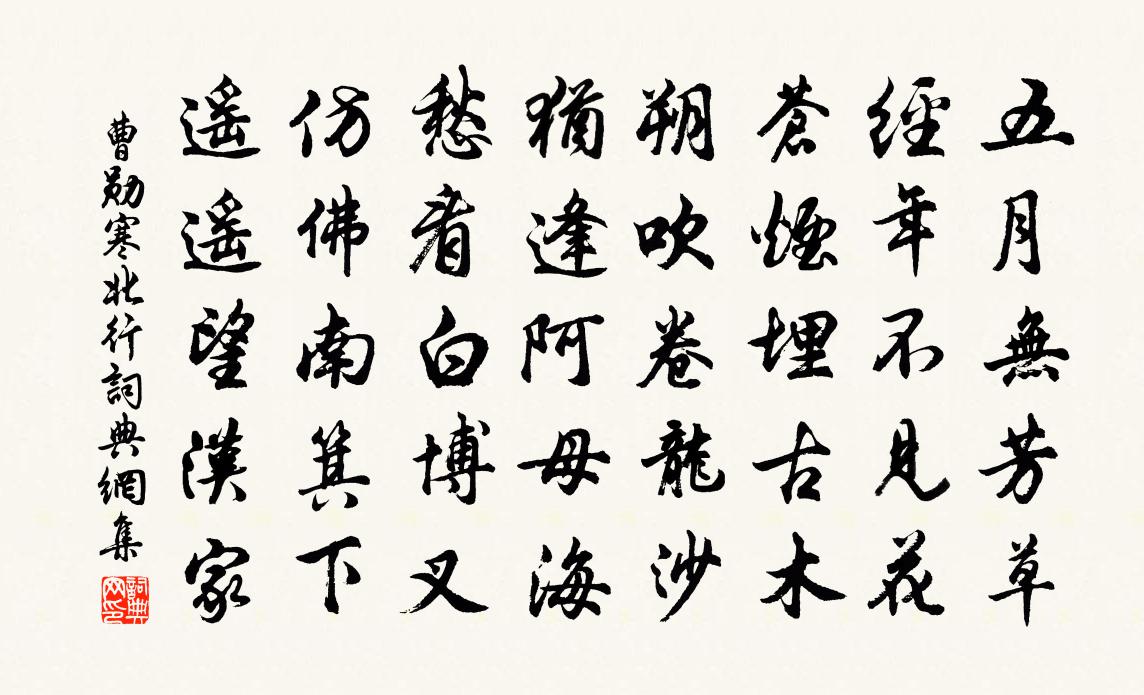 五月無芳草
經年不見花
蒼煙埋古木
朔吹卷龍沙
猶逢阿母海
愁看白博叉
仿佛南箕下
遥遥望漢家
曹勛寒北行詞典網集
詞典网印